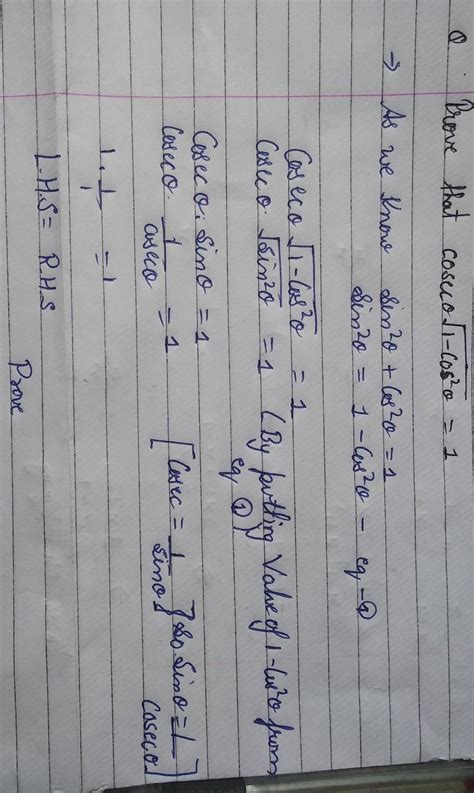 Q Prove that cosecθ√1-Cos²θ = 1
→ As we know Sin²θ + Cos²θ = 1
Sin²θ = 1 - Cos²θ - eq - ①
Cosecθ √1-Cos²θ = 1
Cosecθ. √Sin²θ = 1 (By putting Value of 1-Cos²θ from
eq ①)
Cosecθ. Sinθ = 1
Cosecθ. 1/cosecθ = 1 [Cosec = 1/Sinθ } so. Sinθ = 1/Cosecθ]
1. 1/1 = 1
L.H.S = R.H.S
Prove